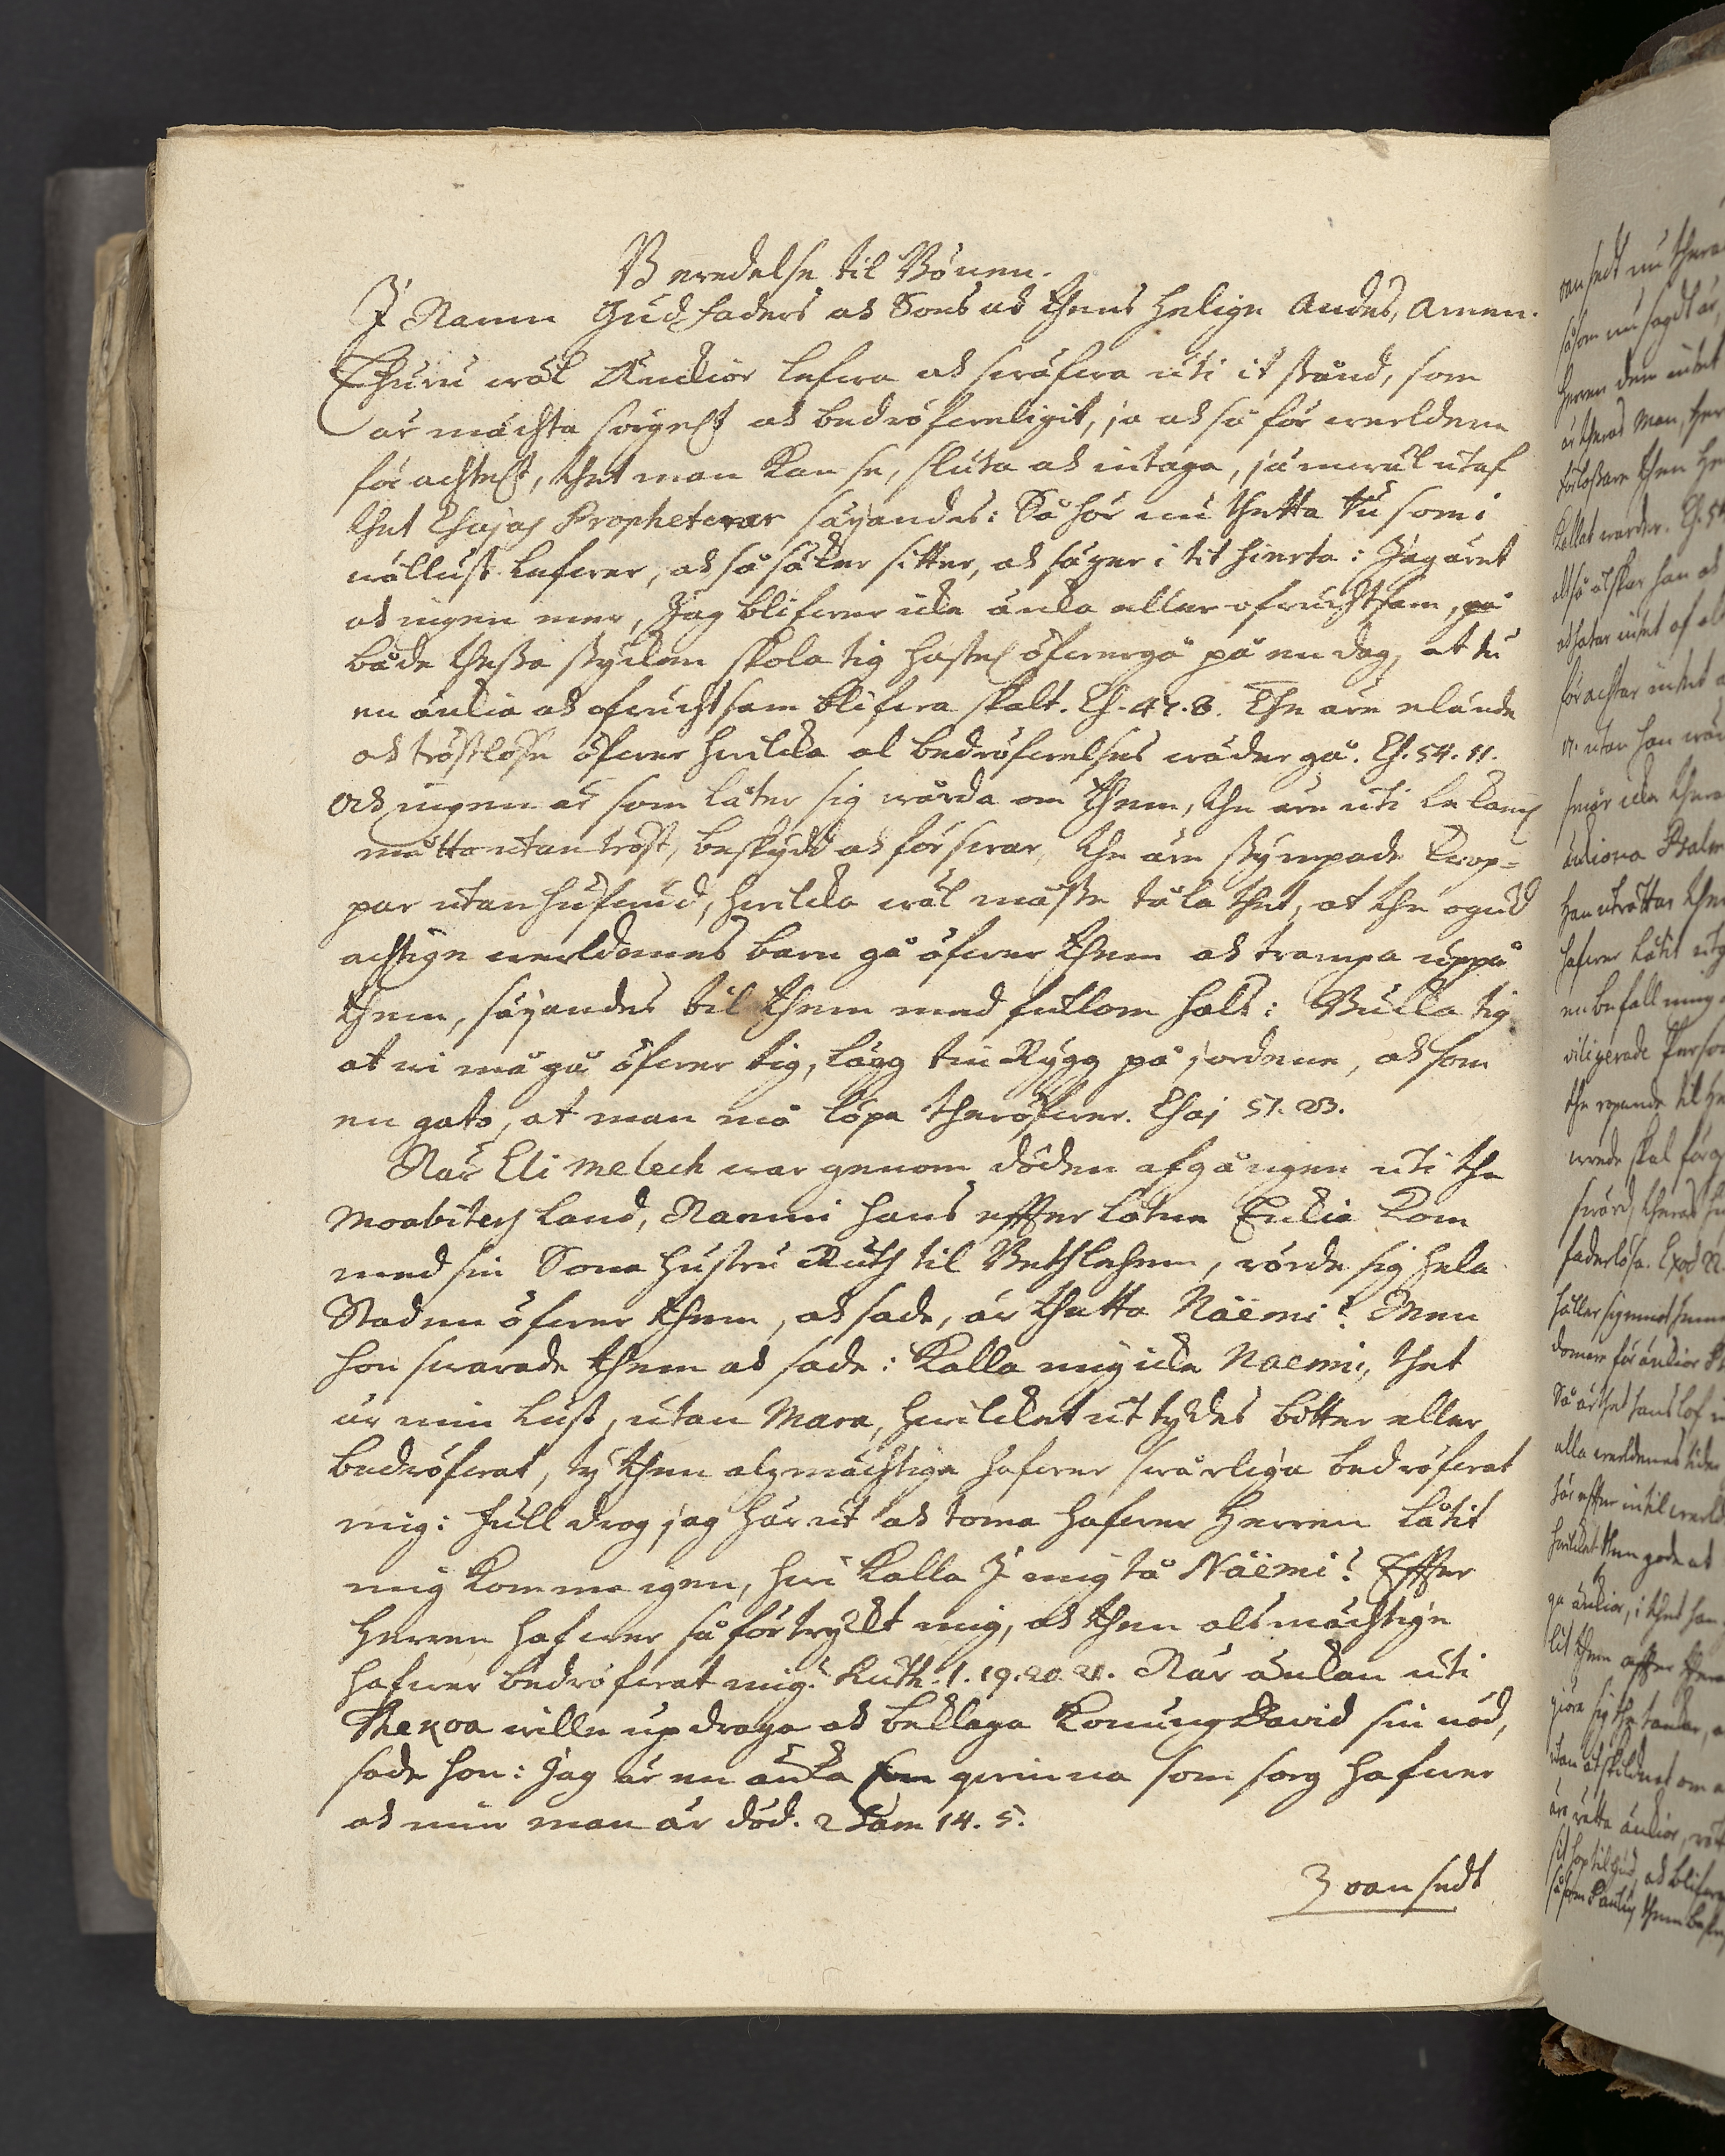 Beredelse til Bönen.
I Namn Gud Faders och Sons och thens Helige Andes, Amen.
Ehuru wäl Änckior lefwa och swäfwa uti it stånd, som
är mächta sorgeligt och bedröfweligit, ja och så för werldene
förachteligt, thet man kan se, sluta och intaga, jämwäl utaf
thet Esajas Propheterar säyandes: Så hör nu thetta tu som i
wällust lefwer, och så säker sitter, och säger i tit hierta: Jag äret
och ingen mer, Jag blifwer icke äncka eller ofruchtsam,
både thessa stycken skola tig hasteliga öfwergå på en dag, at tu
en änckia och ofruchtsam blifwa skalt. Es. 47. 8. The äre elände
och tröstlöse öfwer hwilcka al bedröfwelses wäder gå. Es. 54. 11.
och ingen är som låter sig wårda om them, the äre uti lekamlig
måtto utan tröst, beskydd och förswar, the äre stympade krop-
par utan hufwud, hwilcka wäl måste tåla thet, at the ogud
achtige werldenes barn gå öfwer them och trampa uppå
them, säyandes til them med fullom hals: Bucka tig
at wi må gå öfwer tig, lägg tin Rygg på jordene, och som
en gato, at man må löpa theröfwer. Esaj 51. 23.
När Elimelech war genom döden afgången uti the
Moabiters land, Naemi hans efterlåtne Enckia kom
med sin Sona hustru Ruth til Bethlehem, rörde sig hela
Staden öfwer them, och sade, är thetta Näemi? Men
hon swarade them och sade: Kalla mig icke Naemi, thet
är min lust, utan Mara, hwilcket uttydes bitter eller
bedröfwat, ty then alzmächtige hafwer swårliga bedröfwat
mig: full drog jag här ut och toma hafwer Herren låtit
mig komma igen, hwi kalla I mig tå Näemi? Efter
Herren hafwer så förtryckt mig, och then alsmächtige
hafwer bedröfwat mig. Ruth. 1. 19. 20. 21. När änckan uti
Thekoa wille updraga och beklaga Konung David sin nöd,
sade hon: Jag är en äncka en qwinna som sorg hafwer
och min man är död. 2 Sam 14. 5.
oansedt